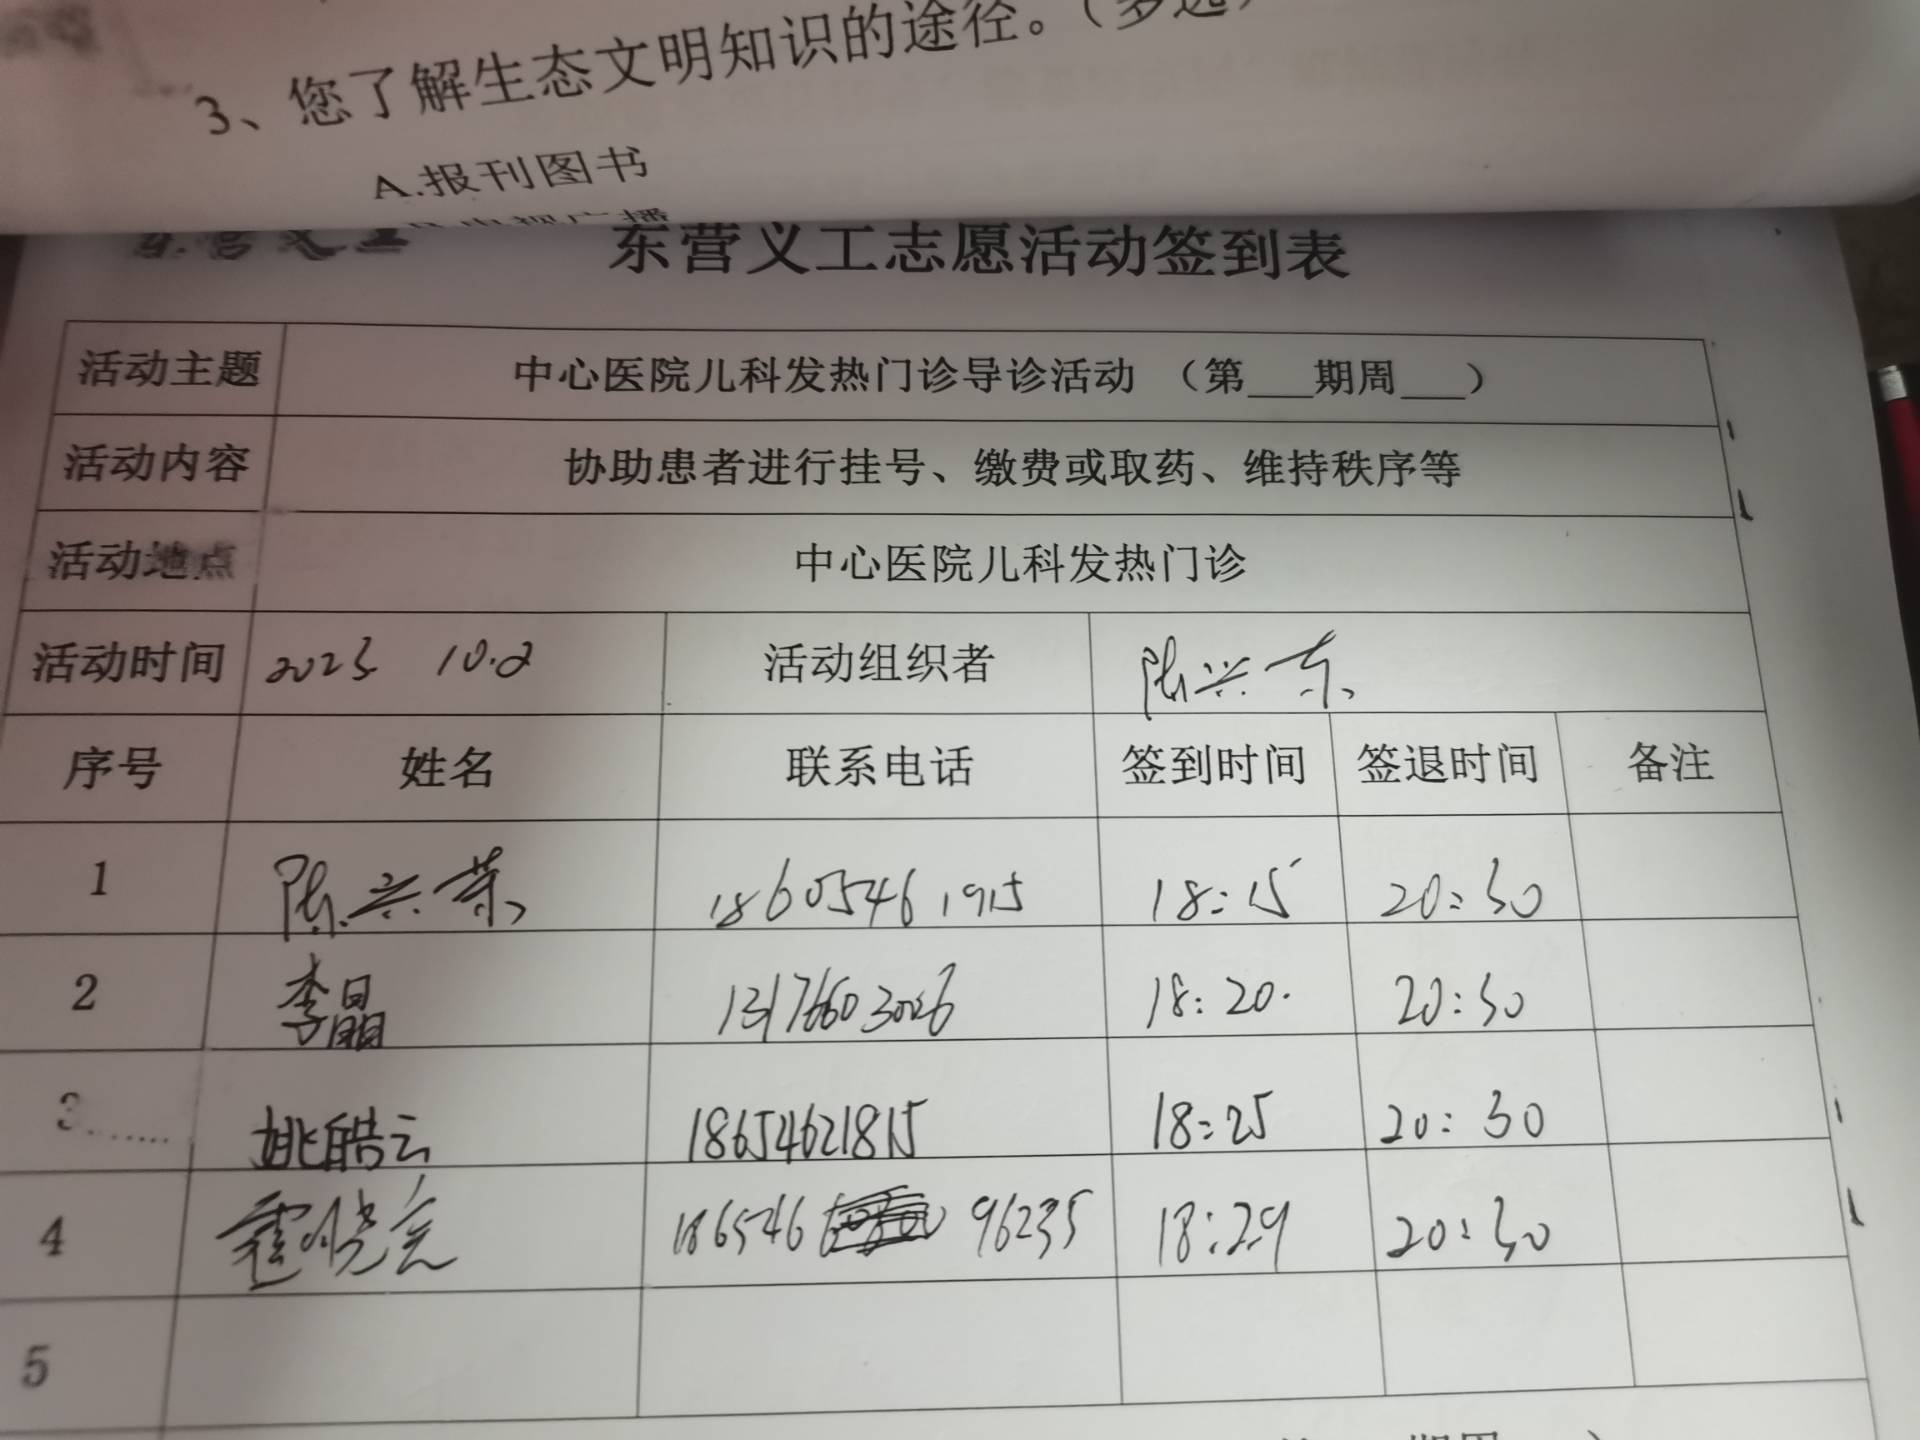 3、您了解生态文明知识的途径。（多选）
A.报刊图书
东营义工
东营义工志愿活动签到表
活动主题 中心医院儿科发热门诊导诊活动 （第___期周___）
活动内容 协助患者进行挂号、缴费或取药、维持秩序等
活动地点 中心医院儿科发热门诊
活动时间 2023 10.2 活动组织者 陈兴东
序号 姓名 联系电话 签到时间 签退时间 备注
1 陈兴荣 18605461915 18:15 20:30
2 李晶 13176603026 18:20. 20:30
3 姚皓云 18654621815 18:25 20:30
4 霍晓 186546 96235 18:29 20:30
5
期周